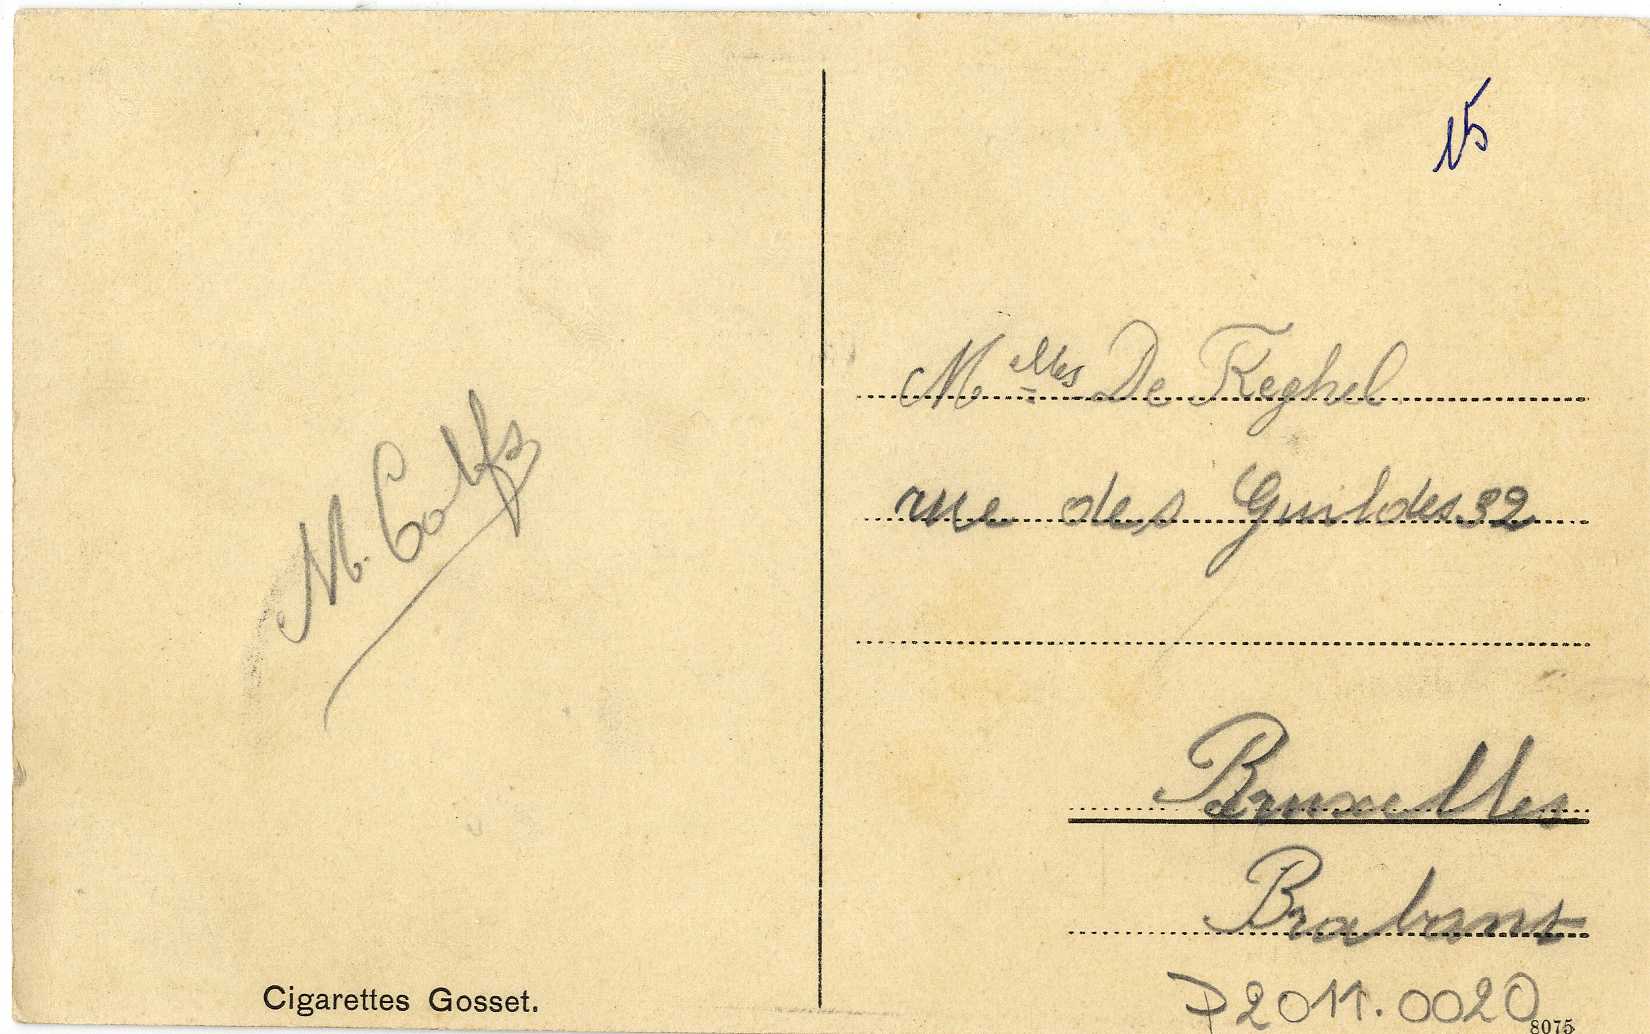 M. Colfs
Cigarettes Gosset.
15
Melles De Keghel
rue des Guildes 32
Bruxelles
Brabant
P2011.0020
8075